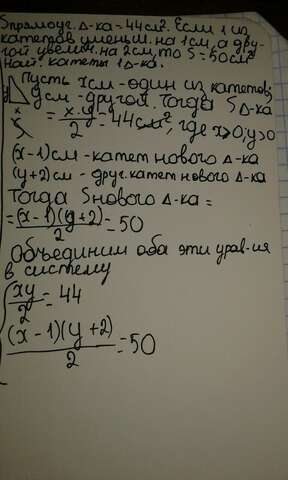 Sпрямоуг. Δ-ка = 44см². Если 1 из
катетов уменьш. на 1см, а дру-
гой увелич. на 2см, то S = 50см²
Найт. катеты 1 Δ-ка.
Пусть xсм - один из катетов;
yсм - другой. Тогда S Δ-ка
= x·y/2 = 44см², где x>0; y>0
y
x
(x-1)см - катет нового Δ-ка
(y+2)см - друг. катет нового Δ-ка
Тогда Sнового Δ-ка =
= (x-1)(y+2)/2 = 50
Объединим оба эти урав-ия
в систему
xy/2 = 44
(x-1)(y+2)/2 = 50